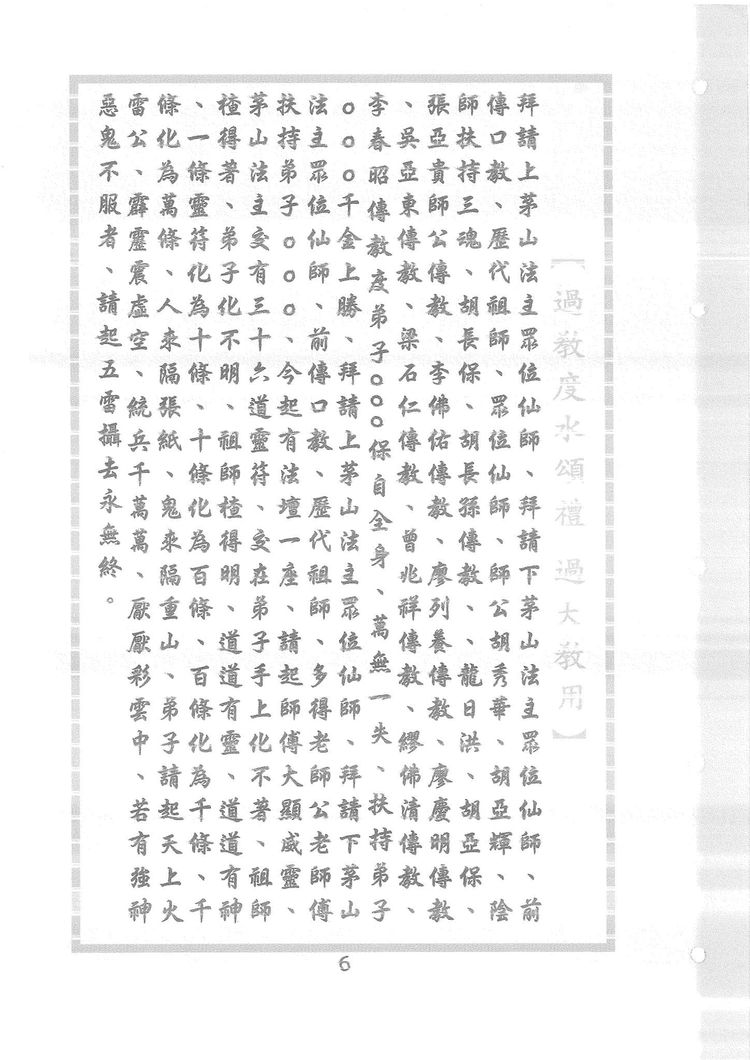 【過教度水頌禮 過大教用】
拜請上茅山法主眾位仙師、拜請下茅山法主眾位仙師、前
傳口教、歷代祖師、眾位仙師、師公胡秀華、胡亞輝、陰
師扶持三魂、胡長保、胡長孫傳教、龍日洪、胡亞保、
張亞貴師公傳教、李佛佑傳教、廖列養傳教、廖慶明傳教
、吳亞東傳教、梁石仁傳教、曾兆祥傳教、繆佛清傳教、
李春昭傳教度弟子ooo保自全身、萬無一失、扶持弟子
ooo千金上勝、拜請上茅山法主眾位仙師、拜請下茅山
法主眾位仙師、前傳口教、歷代祖師、多得老師公老師傅
扶持弟子ooo、今起有法壇一座、請起師傅大顯威靈、
茅山法主交有三十六道靈符、交在弟子手上化不著、祖師
楂得著、弟子化不明、祖師楂得明、道道有靈、道道有神
、一條靈符化為十條、十條化為百條、百條化為千條、千
條化為萬條、人來隔張紙、鬼來隔重山、弟子請起天上火
雷公、霹靂震虛空、統兵千萬萬、厭厭彩雲中、若有強神
惡鬼不服者、請起五雷攝去永無終。
6